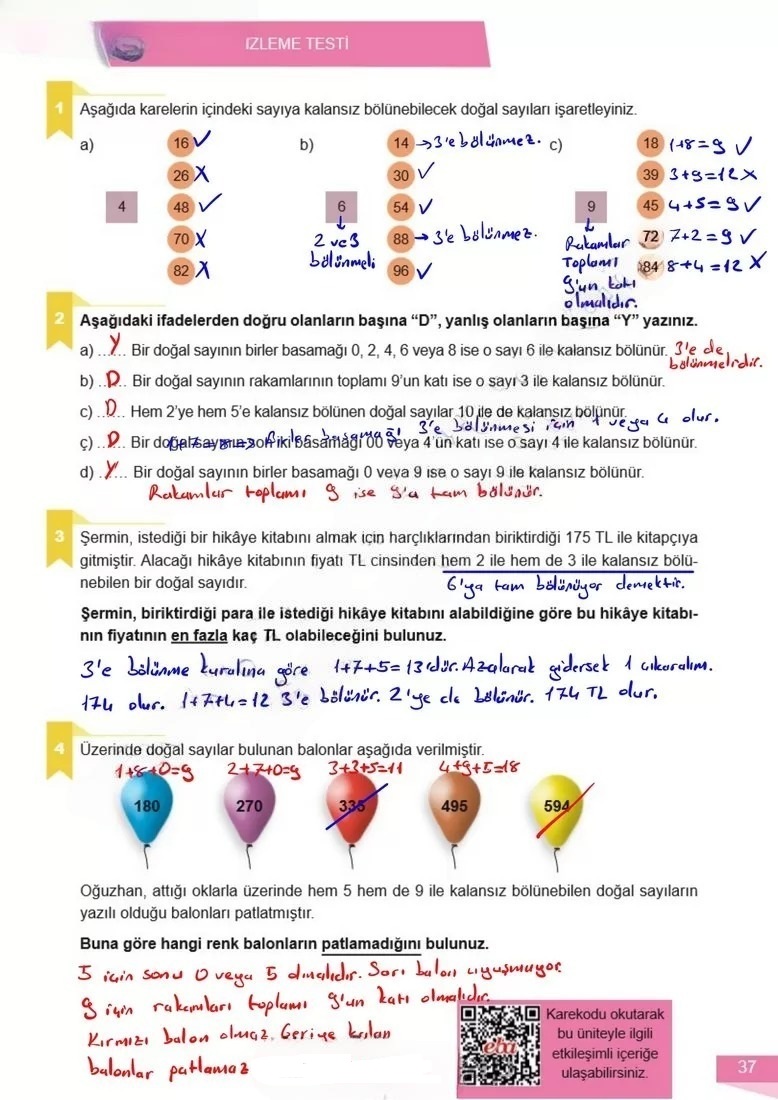 İZLEME TESTİ
1 Aşağıda karelerin içindeki sayıya kalansız bölünebilecek doğal sayıları işaretleyiniz.
a)
4
16 ✓
26 X
48 ✓
70 X
82 X
b)
6
2 ve 3
bölünmeli
14 → 3'e bölünmez.
30 ✓
54 ✓
88 → 3'e bölünmez.
96 ✓
c)
9
Rakamlar
Toplamı
9'un katı
olmalıdır.
18 1+8=9 ✓
39 3+9=12 X
45 4+5=9 ✓
72 7+2=9 ✓
84 8+4=12 X
2 Aşağıdaki ifadelerden doğru olanların başına “D”, yanlış olanların başına “Y” yazınız.
a) ..Y... Bir doğal sayının birler basamağı 0, 2, 4, 6 veya 8 ise o sayı 6 ile kalansız bölünür. 3'e de
bölünmelidir.
b) ..D.. Bir doğal sayının rakamlarının toplamı 9’un katı ise o sayı 3 ile kalansız bölünür.
c) ..D.. Hem 2’ye hem 5’e kalansız bölünen doğal sayılar 10 ile de kalansız bölünür.
3'e bölünmesi için 1 veya 4 olur.
ç) ..D.. Bir doğal sayının son iki basamağı 00 veya 4’ün katı ise o sayı 4 ile kalansız bölünür.
d) ..Y... Bir doğal sayının birler basamağı 0 veya 9 ise o sayı 9 ile kalansız bölünür.
Rakamlar toplamı 9 ise 9'a tam bölünür.
3 Şermin, istediği bir hikâye kitabını almak için harçlıklarından biriktirdiği 175 TL ile kitapçıya
gitmiştir. Alacağı hikâye kitabının fiyatı TL cinsinden hem 2 ile hem de 3 ile kalansız bölü-
nebilen bir doğal sayıdır. 6'ya tam bölünüyor demektir.
Şermin, biriktirdiği para ile istediği hikâye kitabını alabildiğine göre bu hikâye kitabı-
nın fiyatının en fazla kaç TL olabileceğini bulunuz.
3'e bölünme kuralına göre 1+7+5=13'dür. Azalarak gidersek 1 çıkaralım.
174 olur. 1+7+4=12 3'e bölünür. 2'ye de bölünür. 174 TL olur.
4 Üzerinde doğal sayılar bulunan balonlar aşağıda verilmiştir.
1+8+0=9 2+7+0=9 3+3+5=11 4+9+5=18
180 270 335 495 594
Oğuzhan, attığı oklarla üzerinde hem 5 hem de 9 ile kalansız bölünebilen doğal sayıların
yazılı olduğu balonları patlatmıştır.
Buna göre hangi renk balonların patlamadığını bulunuz.
5 için sonu 0 veya 5 olmalıdır. Sarı balon uyuşmuyor
9 için rakamları toplamı 9'un katı olmalıdır.
Kırmızı balon olmaz. Geriye kalan
balonlar patlamaz
eba
Karekodu okutarak
bu üniteyle ilgili
etkileşimli içeriğe
ulaşabilirsiniz.
37